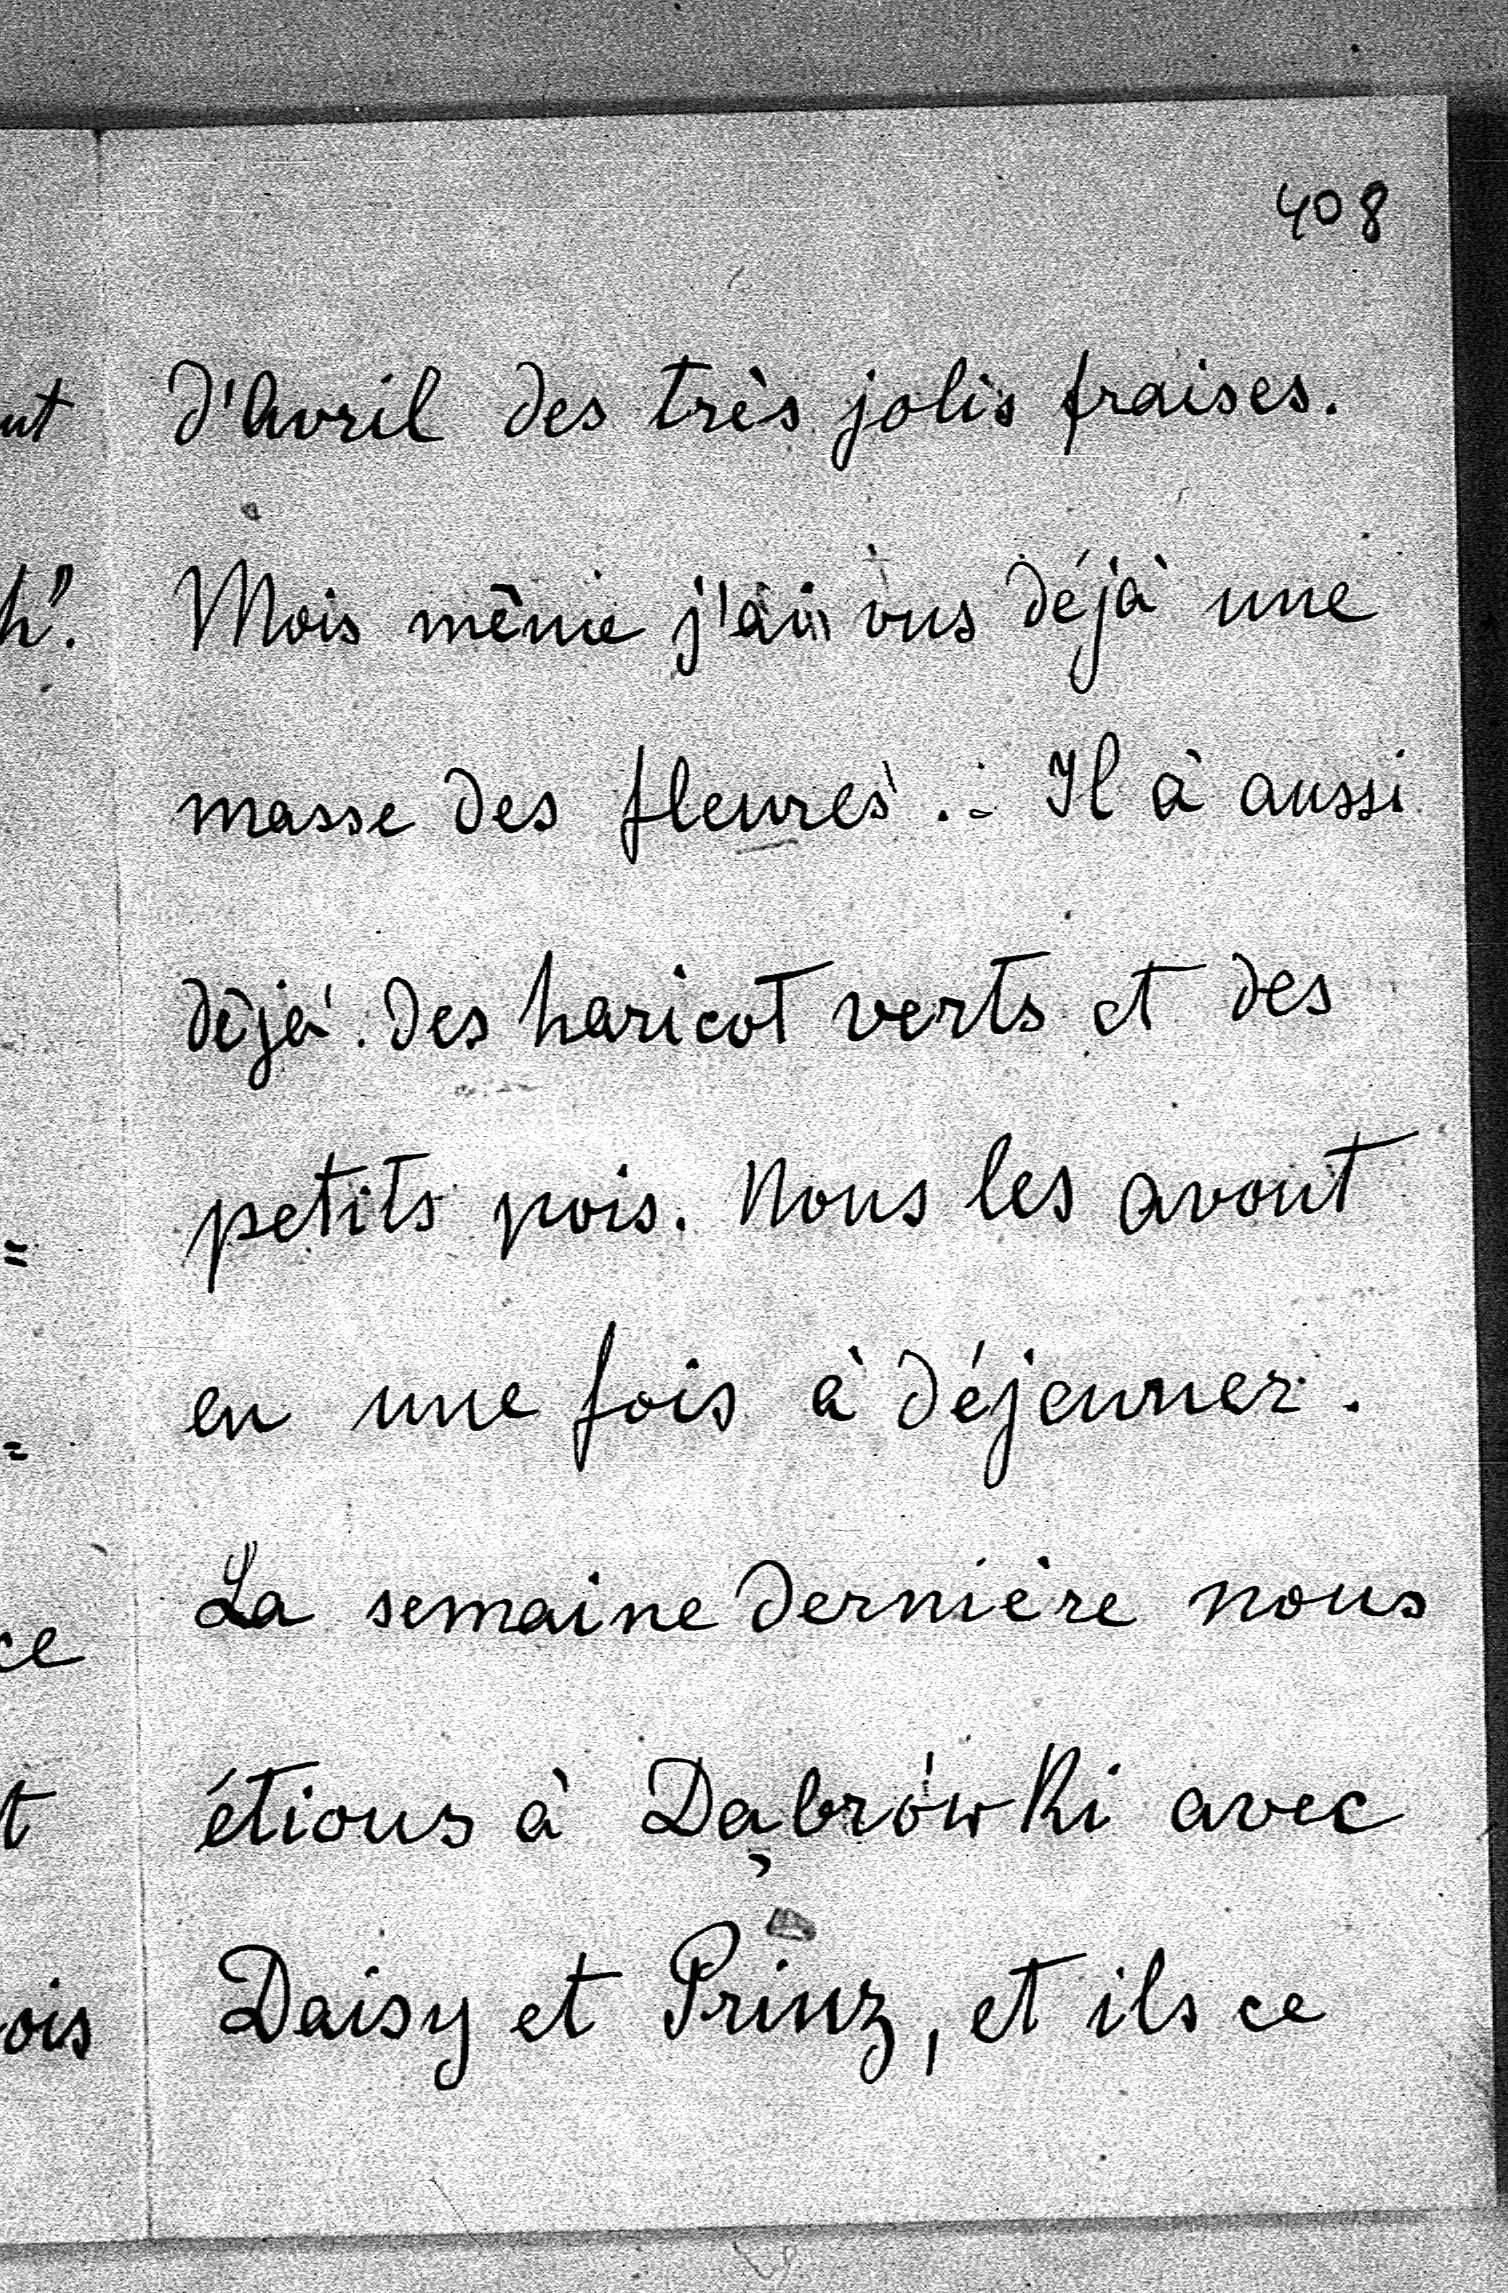 408
d'Avril des très jolis fraises.
Mois même j'ai vus déjà une
masse des fleures. - Il à aussi
déjà des haricot verts et des
petits pois. Nous les avont
eu une fois à déjeuner.
La semaine dernière nous
étions à Dąbrówki avec
Daisy et Prinz, et ils ce